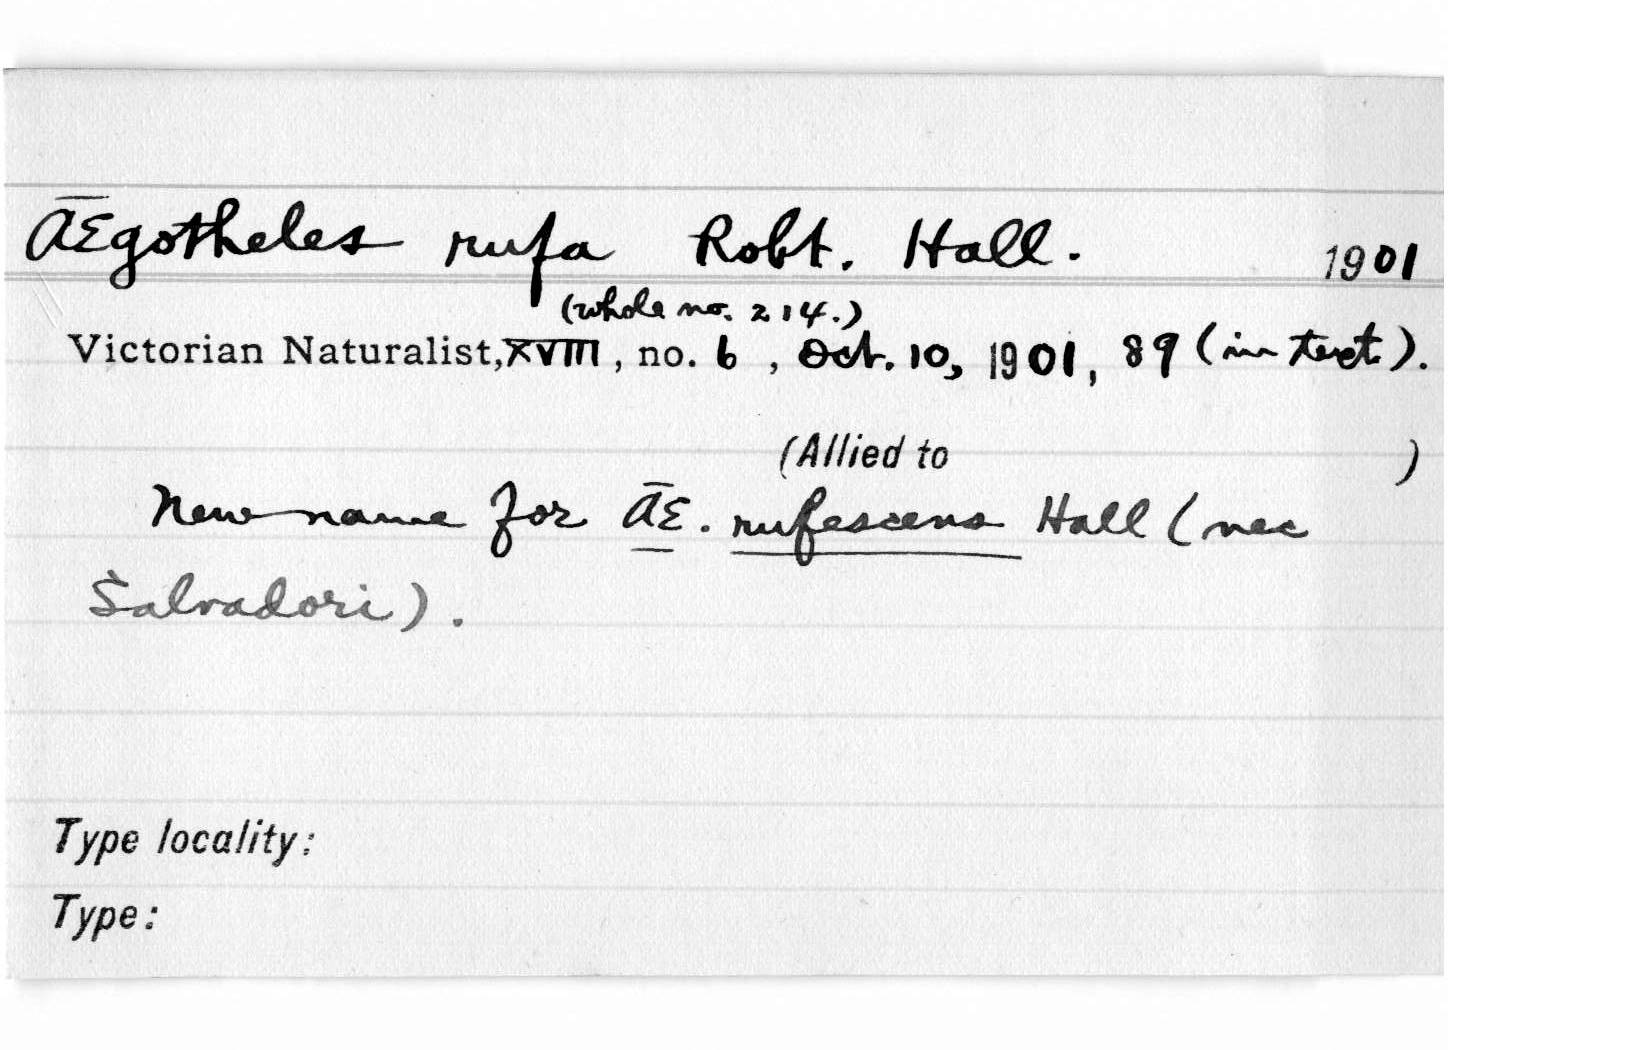 Ægotheles rufa Robt. Hall. 1901
(whole no. 214.)
Victorian Naturalist, XVIII, no. 6, Oct. 10, 1901, 89 (in text).
(Allied to )
New name for Æ. rufescens Hall (nec
Salvadori).
Type locality:
Type: